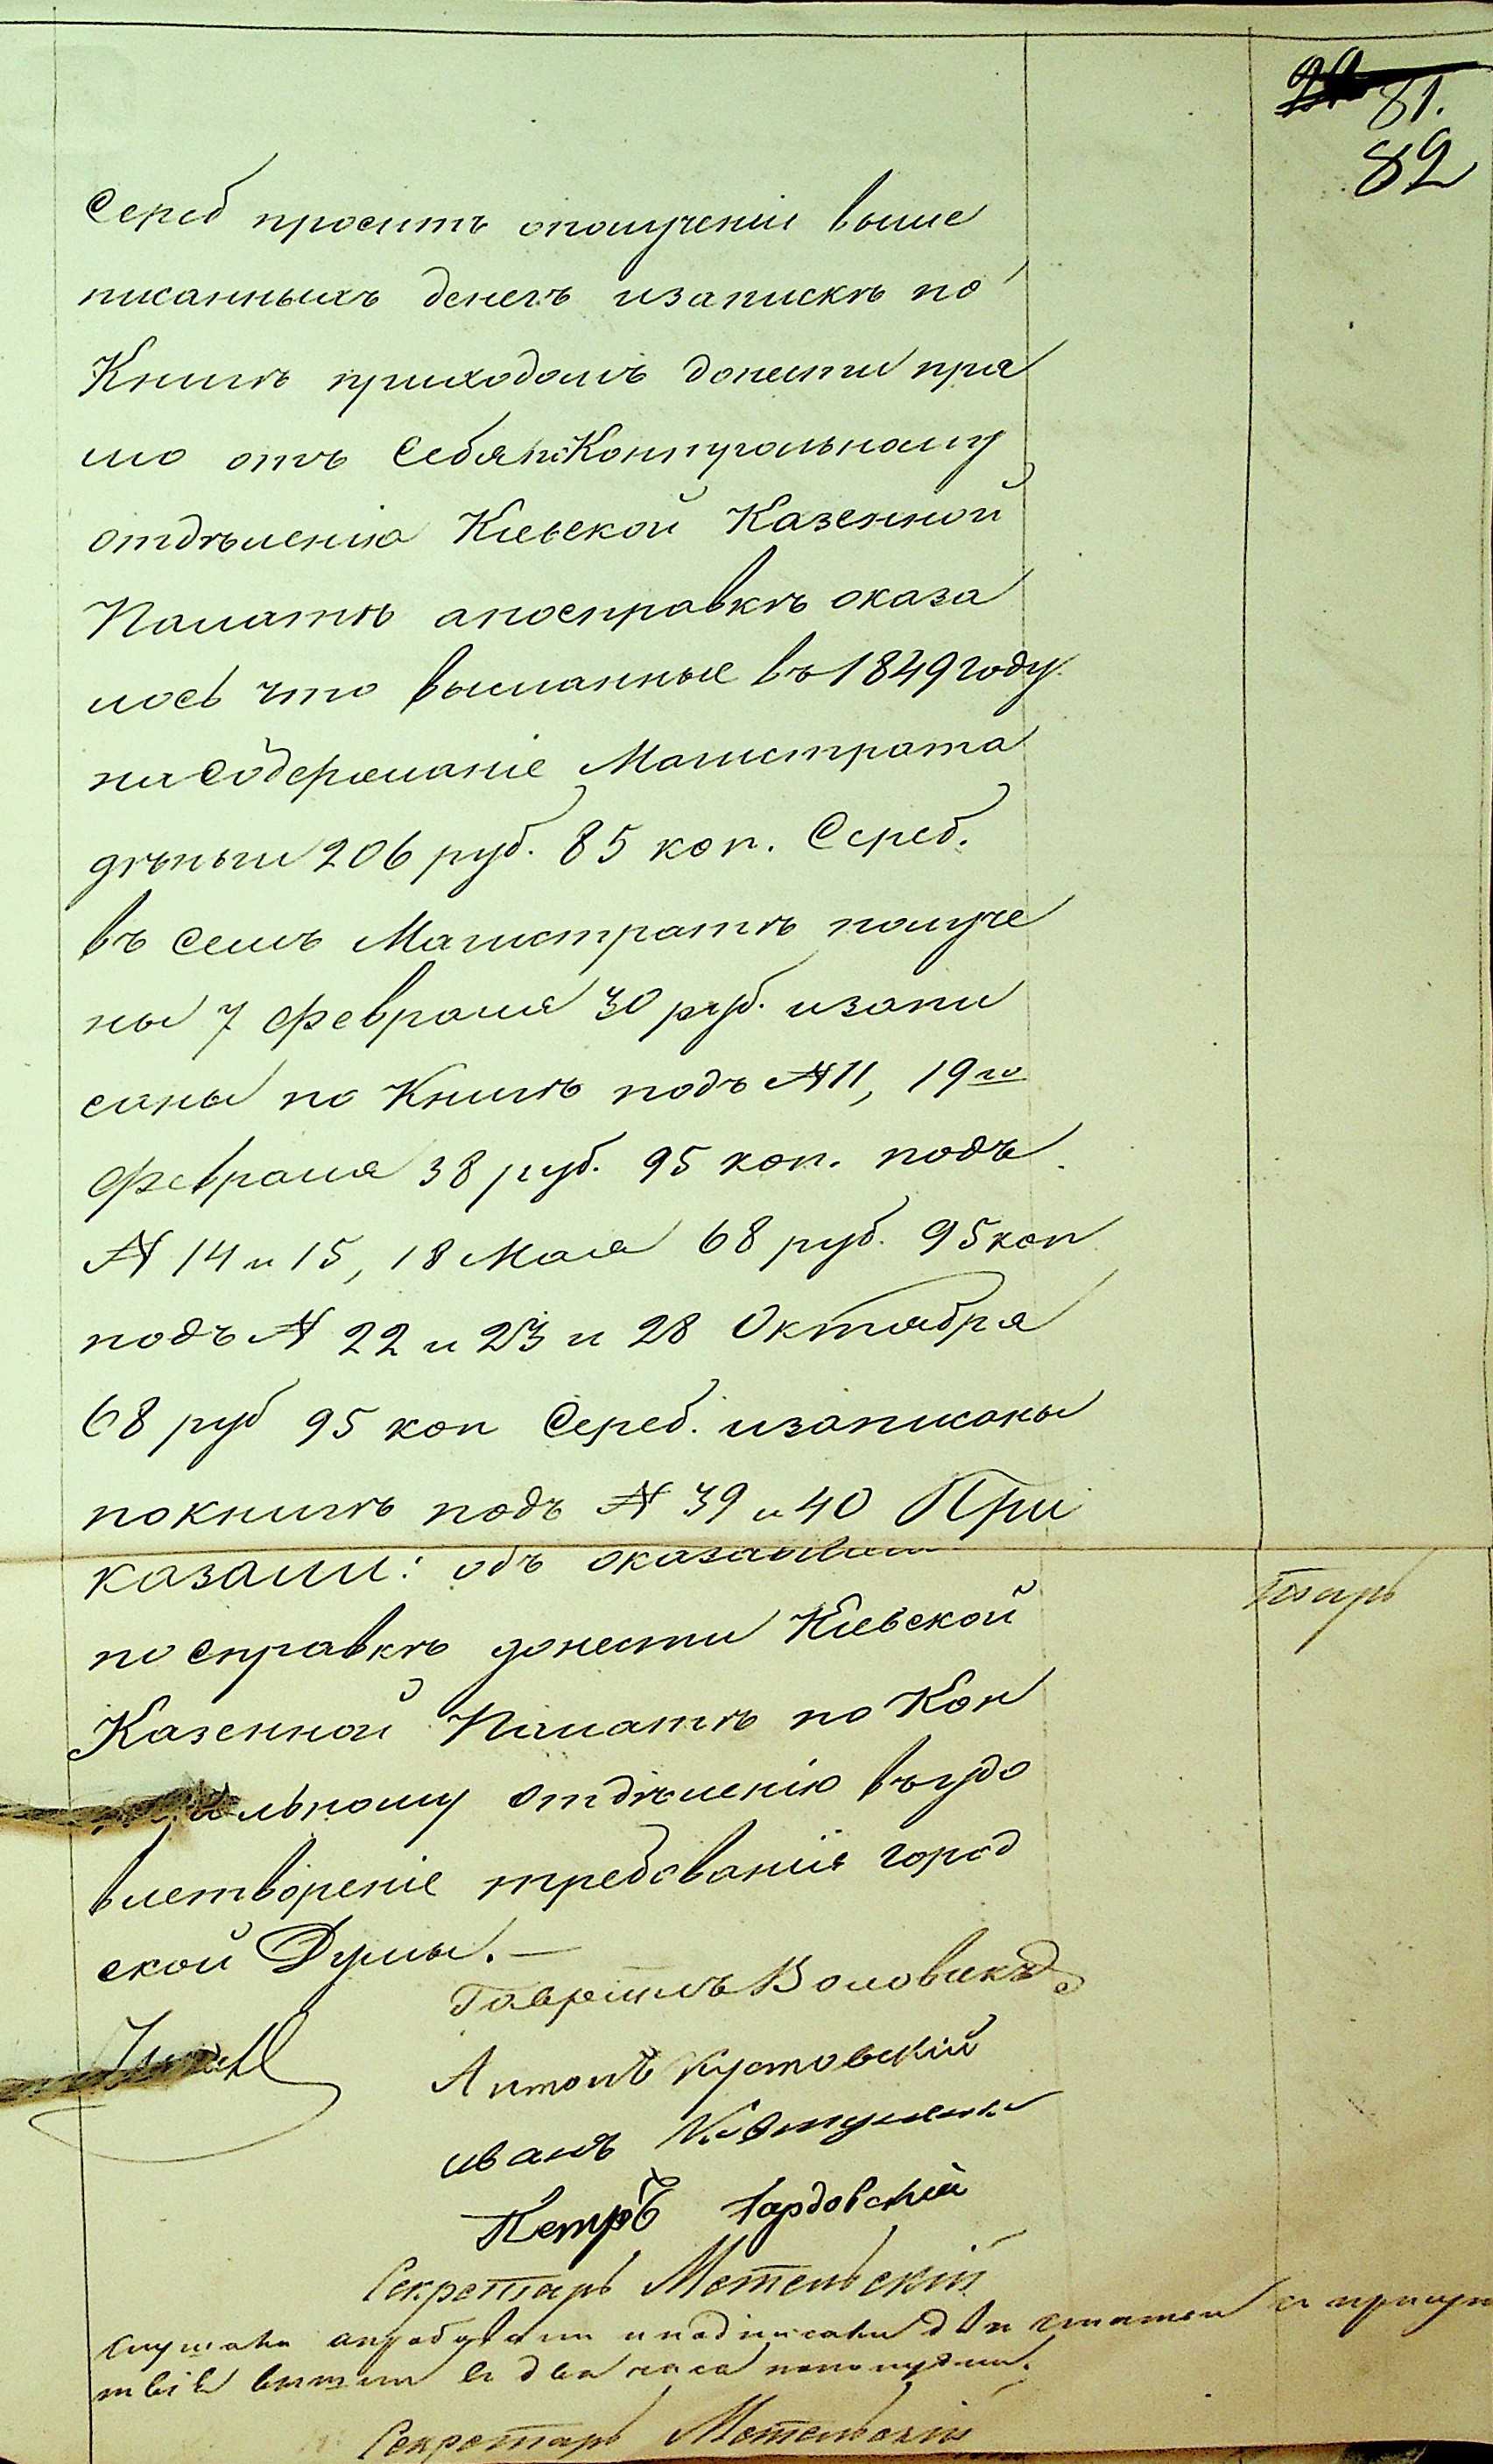 81.
82
Сереб проситъ ополученіи выше
писанныхъ денегъ изапискѣ по
Книгѣ приходомъ донести пря
мо отъ себя поКонтрольному
отдѣленію Кіевской Казенной
Палатѣ апосправкѣ оказа
лось что высланные въ 1849 году
на содержаніе Магистрата
дѣньги 206 руб. 85 коп. Сереб.
въ семъ Магистратѣ получе
ны 7 февраля 30 руб. изапи
саны по Книгѣ подъ № 11, 19го
февраля 38 руб. 95 коп. подъ
№ 14 и 15, 18 Мая 68 руб. 95 коп
подъ № 22 и 23 и 28 Октября
68 руб 95 коп Сереб. изаписаны
покнигѣ подъ № 39 и 40 При
казали: объ оказавшемся
по справкѣ донести Кіевской
Казенной Палатѣ по Кон
льному отдѣленію въ удо
влетвореніе требованія город
ской Думы.—
Гавріилъ Воловикъ
Антонъ Кустовскій
иванъ
Петръ
Секретарь Метельскій
слушали апробовали иподписали двѣ статьи а присут
твіе вышли въ два часа пополудни.
Секретарь Метельскій